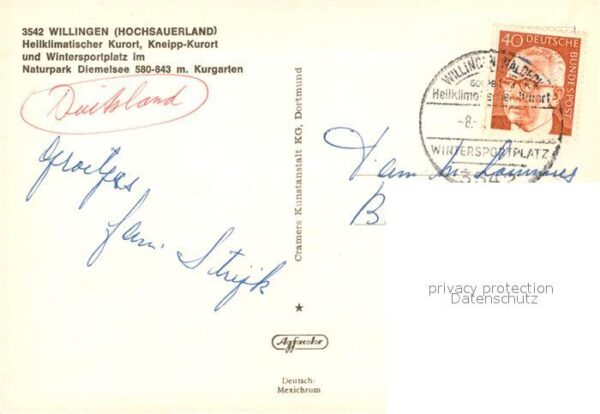 3542 WILLINGEN (HOCHSAUERLAND)
Heilklimatischer Kurort, Kneipp-Kurort
und Wintersportplatz im
Naturpark Diemelsee 580-843 m. Kurgarten
Duitsland
Groetjes
fam. Strijk
Cramers Kunstanstalt KG, Dortmund
Agfacolor
Deutsch-
Mexichrom
40 DEUTSCHE
BUNDESPOST
WILLINGEN WALDECK
Kurort
-8.
WINTERSPORTPLATZ
3542
Fam
B
privacy protection
Datenschutz